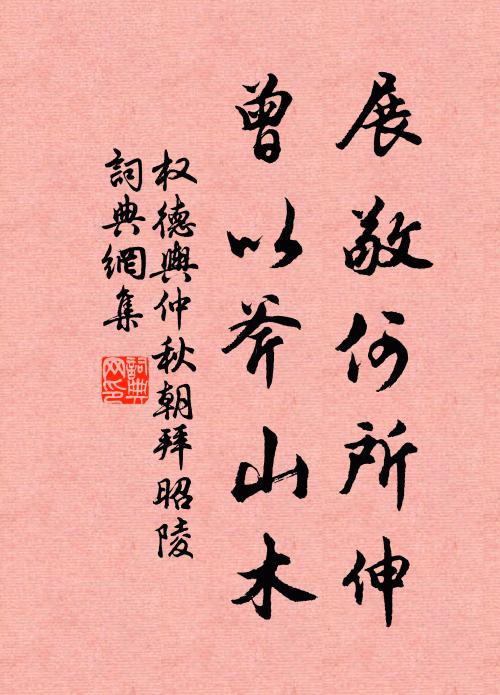 展敬何所伸
曾以斧山木
权德舆仲秋朝拜昭陵
詞典網集
詞典网印